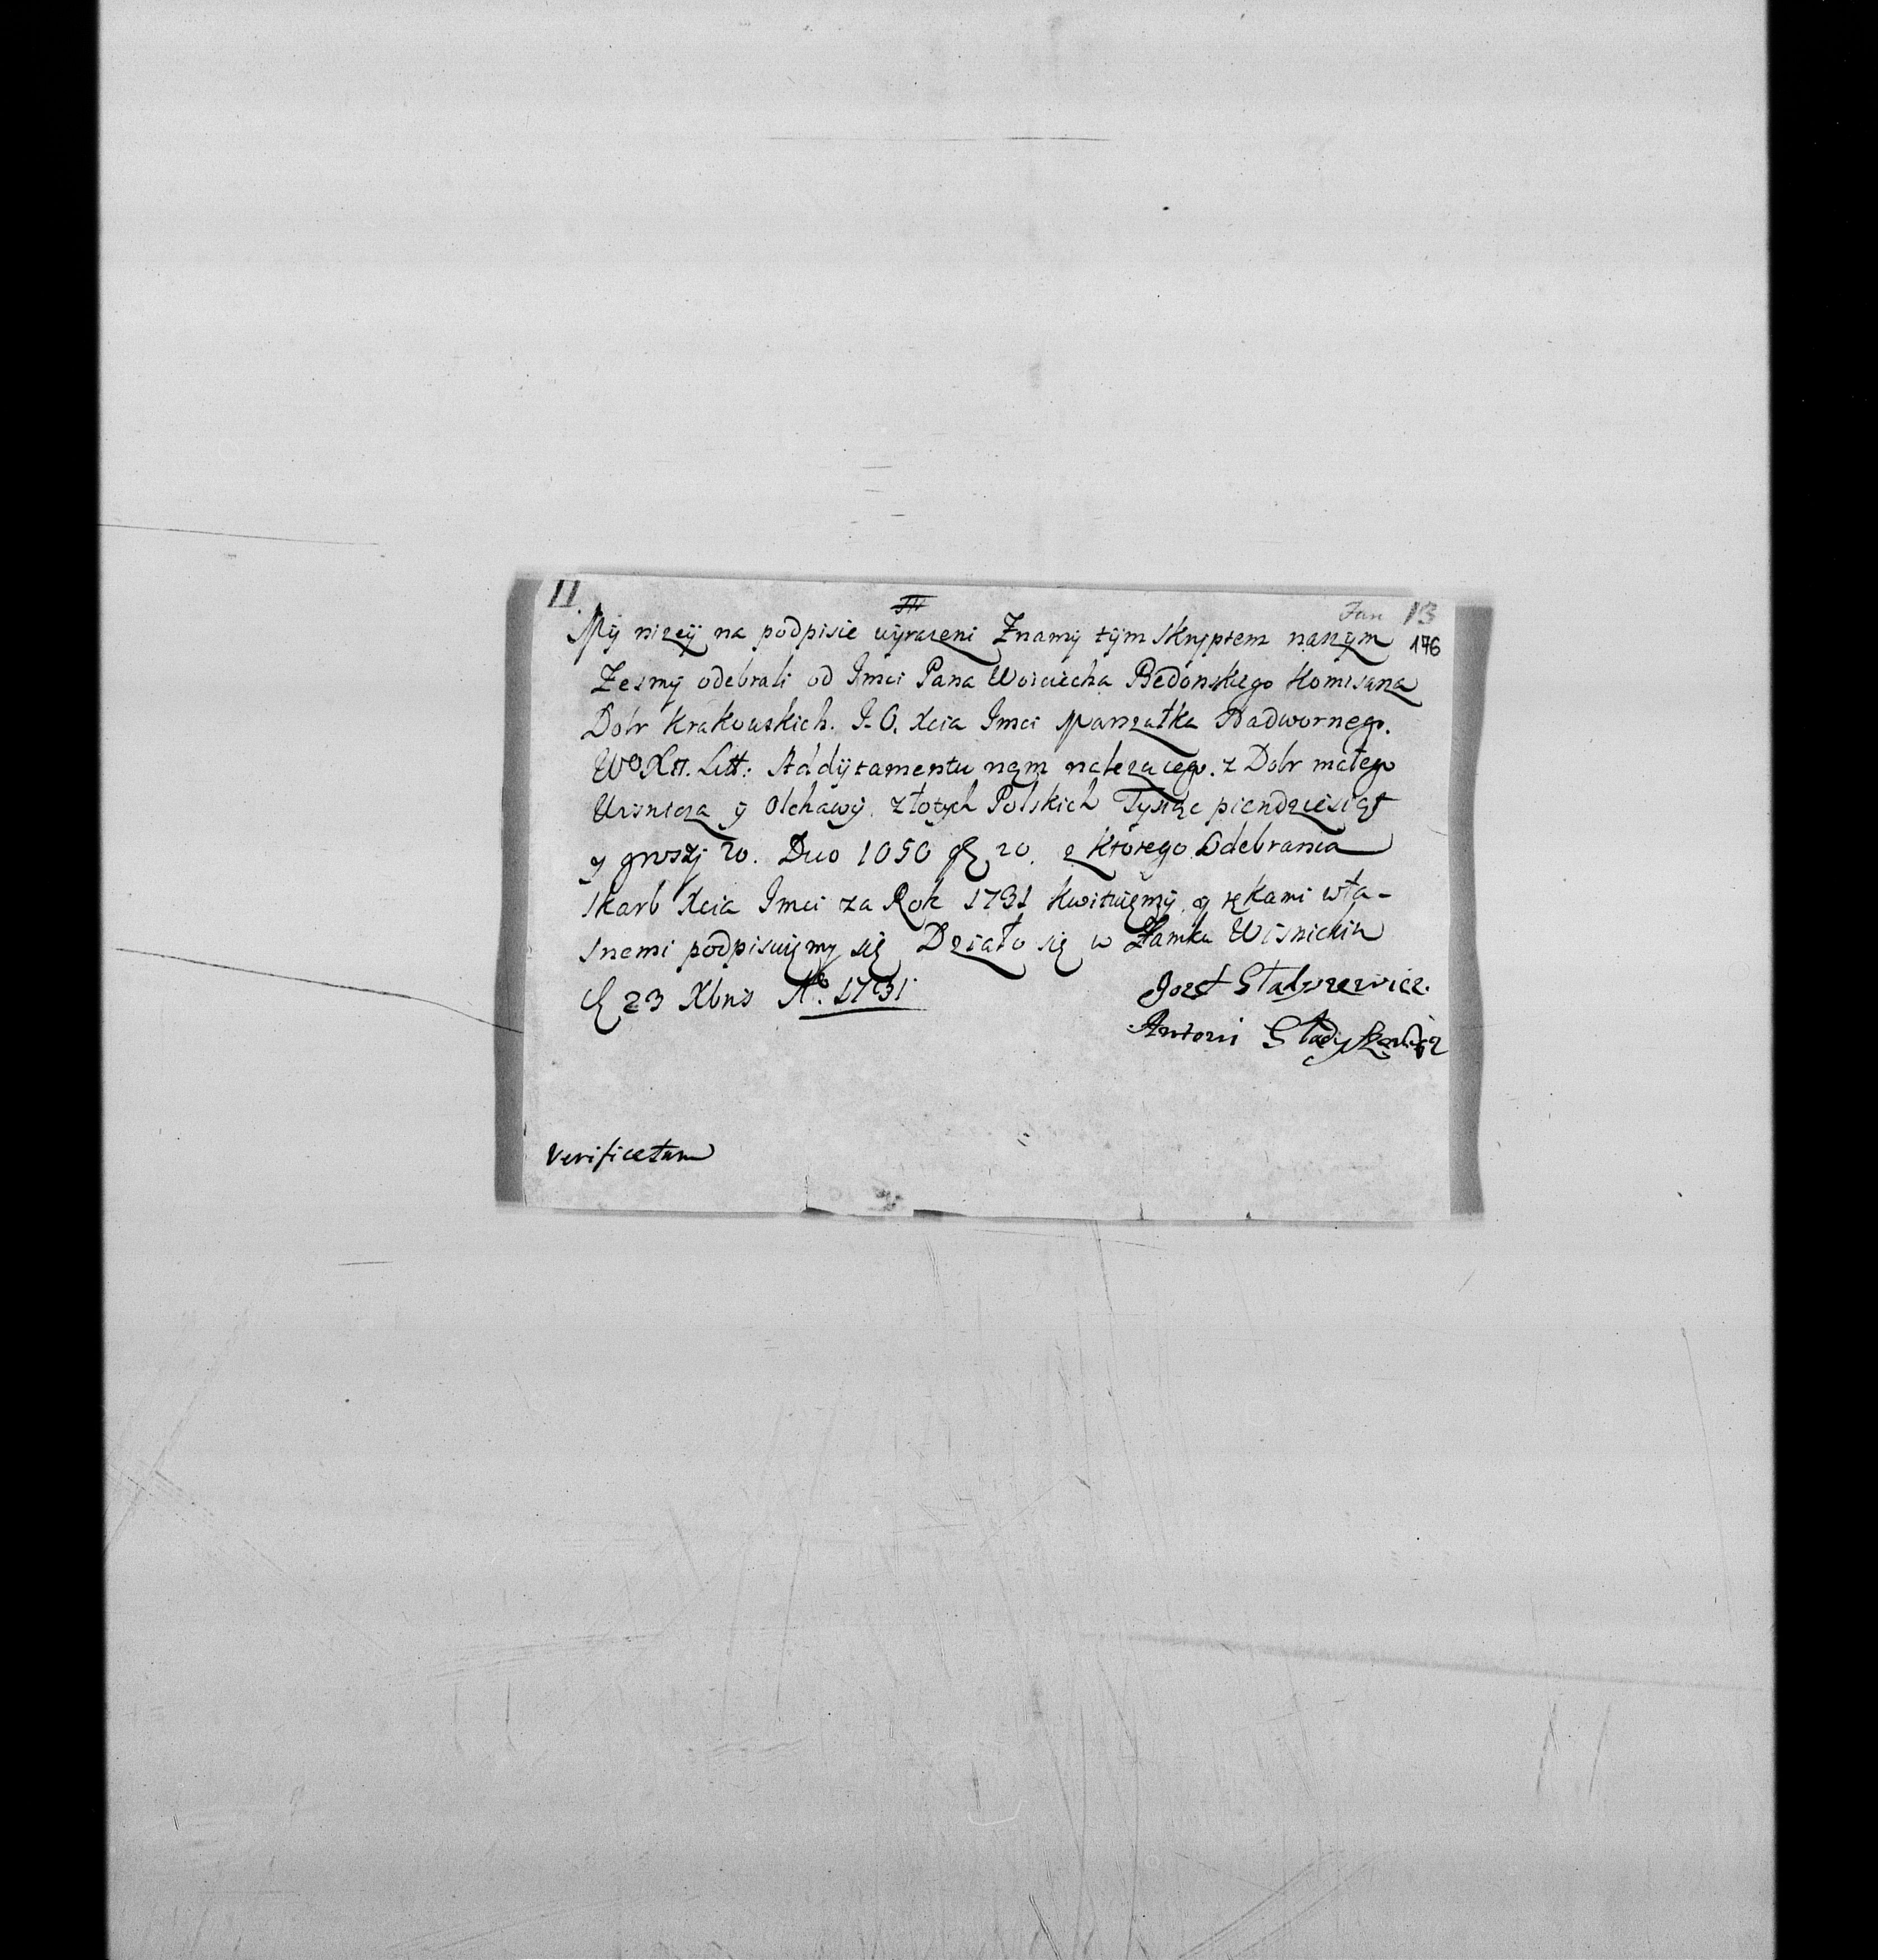 11.
Jan 13
176
My nizey na podpisie wyrazeni Znamy tym Skryptem naszym
Zesmy odebrali od Jmci Pana Woiciecha Bedonskiego Komisarza
Dobr Krakowskich. J. O. Xcia Jmci Marszałka Nadwornego.
Wo Xtt. Litt: Addytamentu nam nalezącego. z Dobr małego
Wisnicza y Olchawy. złotych Polskich Tysiąc piendziesiąt
y groszy 20. Dico 1050 gr 20. z ktorego Odebrania
Skarb Xcia Jmci za Rok 1731 kwituięmy. y rękami wła-
snemi podpisuięmy się Działo się w Zamku Wisnickim
d 23 Xbris Ao. 1731
Jozef Stadyszewicz.
Antoni Stadyszewicz
Verificatum